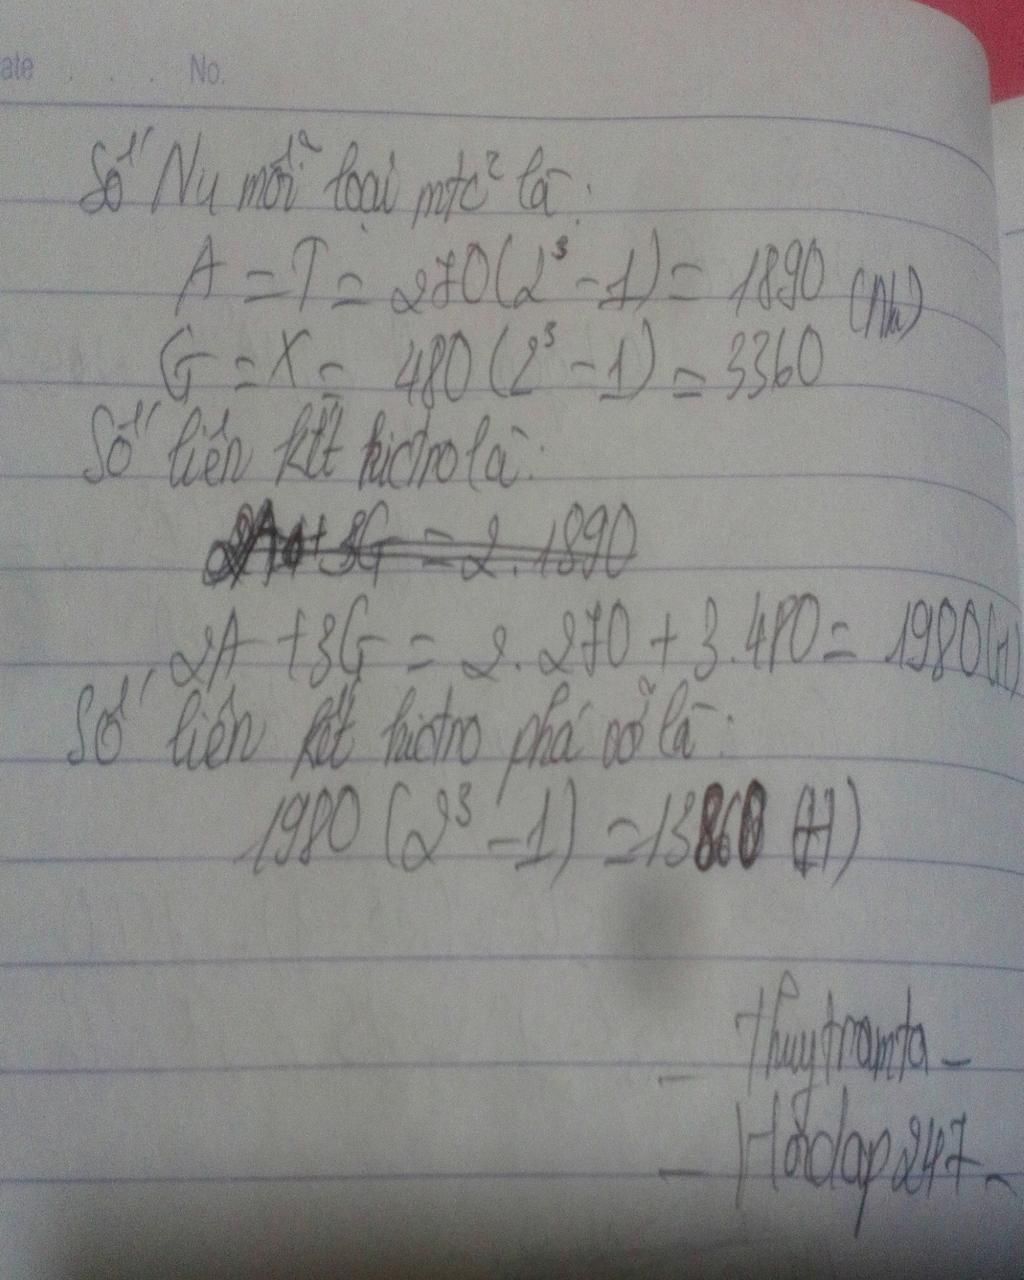 ate . . . No.
Số Nu mỗi loại mtc² là:
A = T = 270(2³ - 1) = 1890 (Nu)
G = X = 480(2³ - 1) = 3360
Số liên kết hiđro là:
2A + 3G = 2.1890
2A + 3G = 2.270 + 3.480 = 1980(H)
Số liên kết hiđro phá vỡ là:
1980 (2³ - 1) = 13860 (H)
- thuytramta -
- Hỏidap247 -